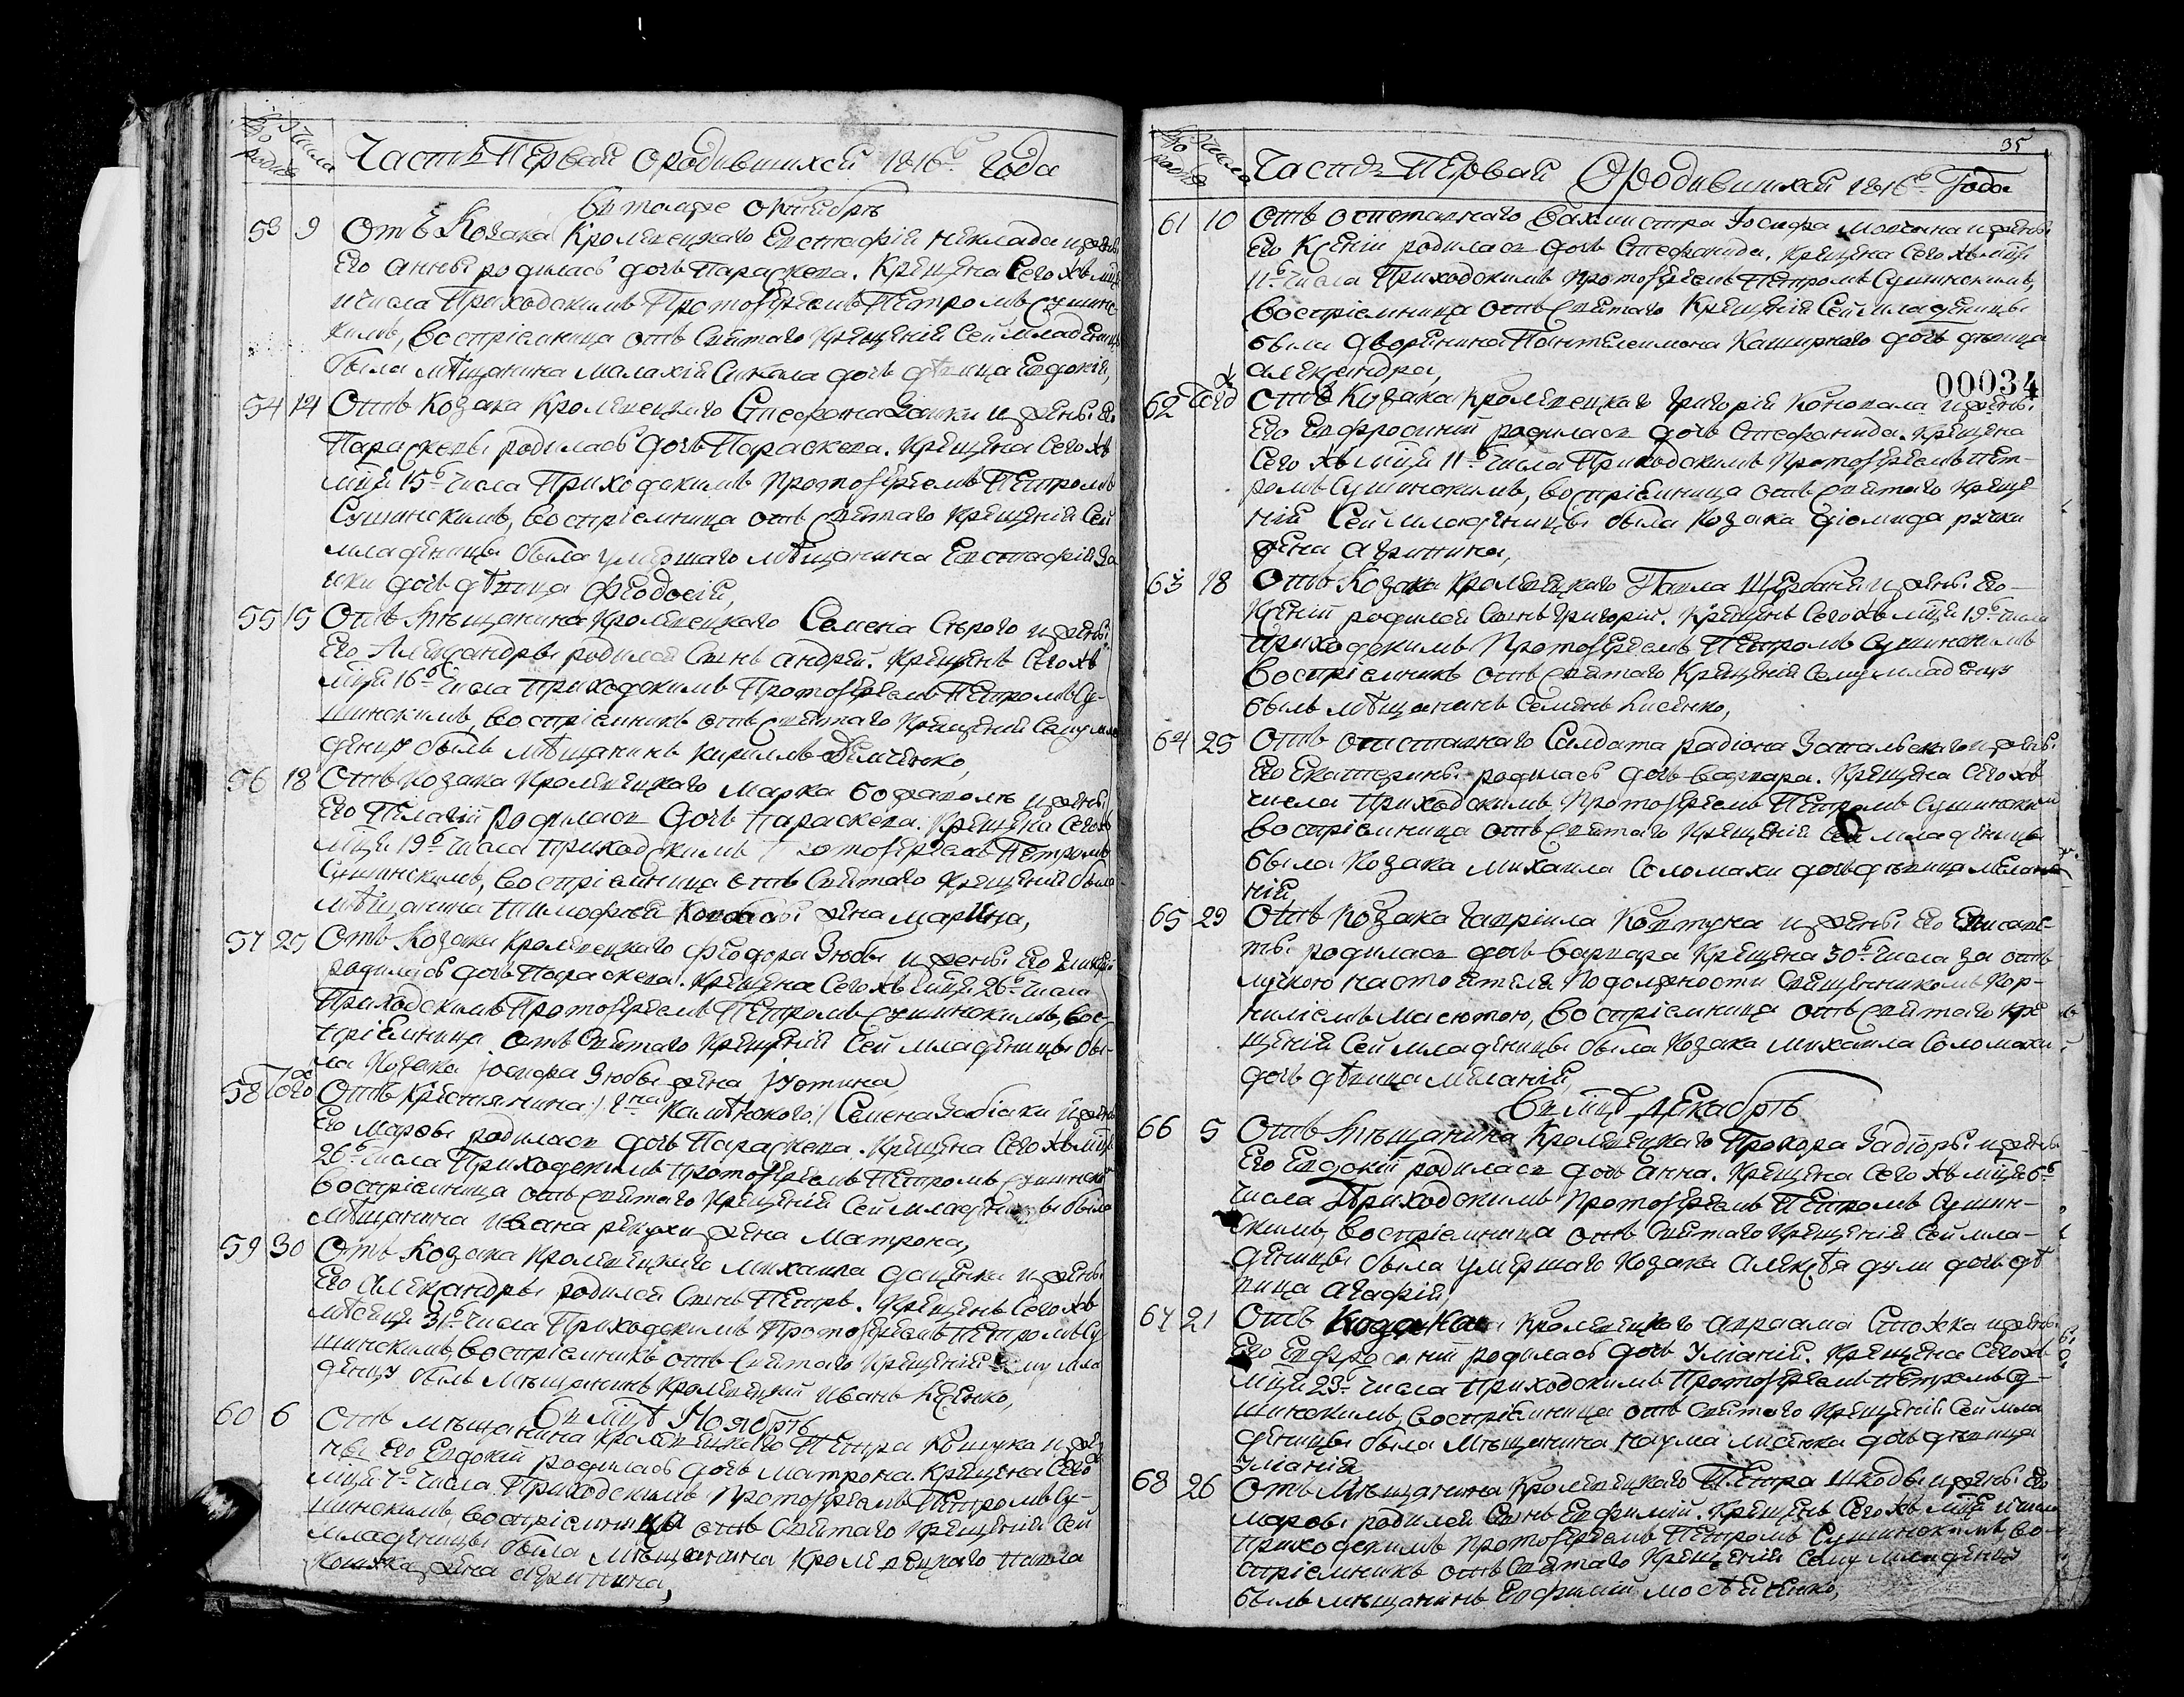 Число родив
Числа
Часть Первая о родившихся 1816го Года
Въ томъже октябрѣ
53 9 Отъ Козака Кролевецкаго Евстафія Неклада и жены
Его Анны родилась дочь Параскева. Крещена Сего Хъ мца
и числа Приходскимъ Протоіереемъ Петромъ Сушинс-
кимъ, Воспріемница отъ Святаго Крещенія Сей младеницы
была мѣщанина Малахія Сикала дочь дѣвица Евдокія,
54 14 Отъ Козака Кролевецкаго Стефана Заики и жены Его
Параскевы родилась дочь Параскева. Крещена Сего Хъ
мця 15го числа Приходскимъ Протоіереемъ Петромъ
Сушинскимъ, Воспріемница отъ Святаго Крещенія Сей
младеницы была умершаго мѣщанина Евстафія За
ики дочь дѣвица Феодосія,
55 15 Отъ Мѣщанина Кролевецкаго Семена Сѣрого и жены
Его Александры родился Сынъ Андрей. Крещенъ Сего Хъ
мця 16го числа Приходскимъ Протоіереемъ Петромъ Су-
шинскимъ, Воспріемникъ отъ Святаго Крещенія Сему мла
денцу былъ мѣщанинъ Кириллъ Демченко,
56 18 Отъ Козака Кролевецкаго Марка и жены
Его Пелагіи родилась дочь Параскева. Крещена Сего Хъ
мця 19го числа Приходскимъ Протоіереемъ Петромъ
Сушинскимъ, Воспріемница отъ Святаго Крещенія была
мѣщанина Тимофея жена Марина,
57 25 Отъ Козака Кролевецкаго Феодора Зюбы и жены Его
родилась дочь Параскева. Крещена Сего Хъ мця 26го числа
Приходскимъ Протоіереемъ Петромъ Сушинскимъ, Вос-
пріемница отъ Святаго Крещенія Сей младеницы бы-
ла Козака Іосифа Зюбы жена Іустина,
58 Того ж Отъ Крестьянина Семена Забіаки и жены
Его Марѳы родилась дочь Параскева. Крещена Сего Хъ мця
26го числа Приходскимъ Протоіереемъ Петромъ Сушинским
Воспріемница отъ Святаго Крещенія Сей младеницы была
мѣщанина Ивана жена Матрона,
59 30 Отъ Козака Кролевецкаго Михаила Даценка и жены
Его Александры родился Сынъ Петръ. Крещенъ Сего Хъ
мѣсяця 31го числа Приходскимъ Протоіереемъ Петромъ Су
шинскимъ, Воспріемникъ отъ Святаго Крещенія Сему мла
денцу былъ Мѣщанинъ Кролевецкій Иванъ
Въ мцѣ Ноябрѣ
60 6 Отъ мѣщанина Кролевецкаго Петра Кошука и же
ны Его Евдокіи родилась дочь Матрона. Крещена Сего
мця 7го числа Приходскимъ Протоіереемъ Петромъ Су-
шинскимъ, воспріемница отъ Святаго Крещенія Сей
младеницы была мѣщанина Кролевецкаго Павла
жена Агрипина,
35
Число родив
Числа
Часть Первая О родившихся 1816го Года
61 10 Отъ отставнаго Вахмистра Іосифа и жены
Его Ксеніи родилась дочь Стефанида. Крещена Сего Хъ мця
11го числа Приходскимъ Протоіереемъ Петромъ Сушинскимъ,
Воспріемница отъ Святаго Крещенія Сей младеницы
была дворянина Пантелеимона Каширного дочь дѣвица
Александра,
00034
62 Того ж Отъ Козака Кролевецкаго Григорія Коновала и жены
Его Евфросиніи родилась дочь Стефанида. Крещена
Сего Хъ мця 11го числа Приходскимъ Протоіереемъ Пет-
ромъ Сушинскимъ, Воспріемница отъ Святаго Креще
нія Сей младеницы была Козака Діомида Ручки
жена Агрипина,
63 18 Отъ Козака Кролевецкаго Павла Щербаня и жены Его
Ксеніи родился Сынъ Григорій. Крещенъ Сего Хъ мця 19го числа
Приходскимъ Протоіереемъ Петромъ Сушинскимъ
Воспріемникъ отъ Святаго Крещенія Сему младенцу
былъ мѣщанинъ Семенъ Лисенко,
64 25 Отъ отставнаго Салдата Радіона и жены
Его Екатерины родилась дочь Варвара. Крещена Сего Хъ
числа Приходскимъ Протоіереемъ Петромъ Сушинским
Воспріемница отъ Святаго Крещенія Сей младеницы
была Козака Михаила Соломахи дочь дѣвица Мелана
нія,
65 29 Отъ Козака Гавріила Ковтуна и жены Его Елисаве-
ты родилась дочь Варвара Крещена 30го числа за от
лучкою настоятеля По должности Священникомъ Кор-
ниліемъ Масютою, Воспріемница отъ Святаго Кре
щенія Сей младеницы была Козака Михаила Соломахи
дочь дѣвица Меланія,
Въ мцѣ Декабрѣ
66 5 Отъ Мѣщанина Кролевецкаго Прохора Задіоры и жены
Его Евдокіи родилась дочь Анна. Крещена Сего Хъ мця 6го
числа Приходскимъ Протоіереемъ Петромъ Сушин-
скимъ, Воспріемница отъ Святаго Крещенія Сей мла-
деницы была умершаго Козака Алексѣя Дули дочь дѣ
вица Агафія,
67 21 Отъ Козака Кролевецкаго Авраама Стожка и жены
Его Евфросиніи родилась дочь Уліанія. Крещена Сего Хъ
мця 23го числа Приходскимъ Протоіереемъ Петромъ Су-
шинскимъ, Воспріемница отъ Святаго Крещенія Сей мла
деницы была Мѣщанина Наума Лисенка дочь дѣвица
Уліанія,
68 26 Отъ Мѣщанина Кролевецкаго Петра Шкоды и жены Его
Марѳы родился Сынъ Евфимій. Крещенъ Сего Хъ мця и числа
Приходскимъ Протоіереемъ Петромъ Сушинскимъ, Во-
спріемникъ отъ Святаго Крещенія Сему младенцу
былъ мѣщанинъ Евфимій